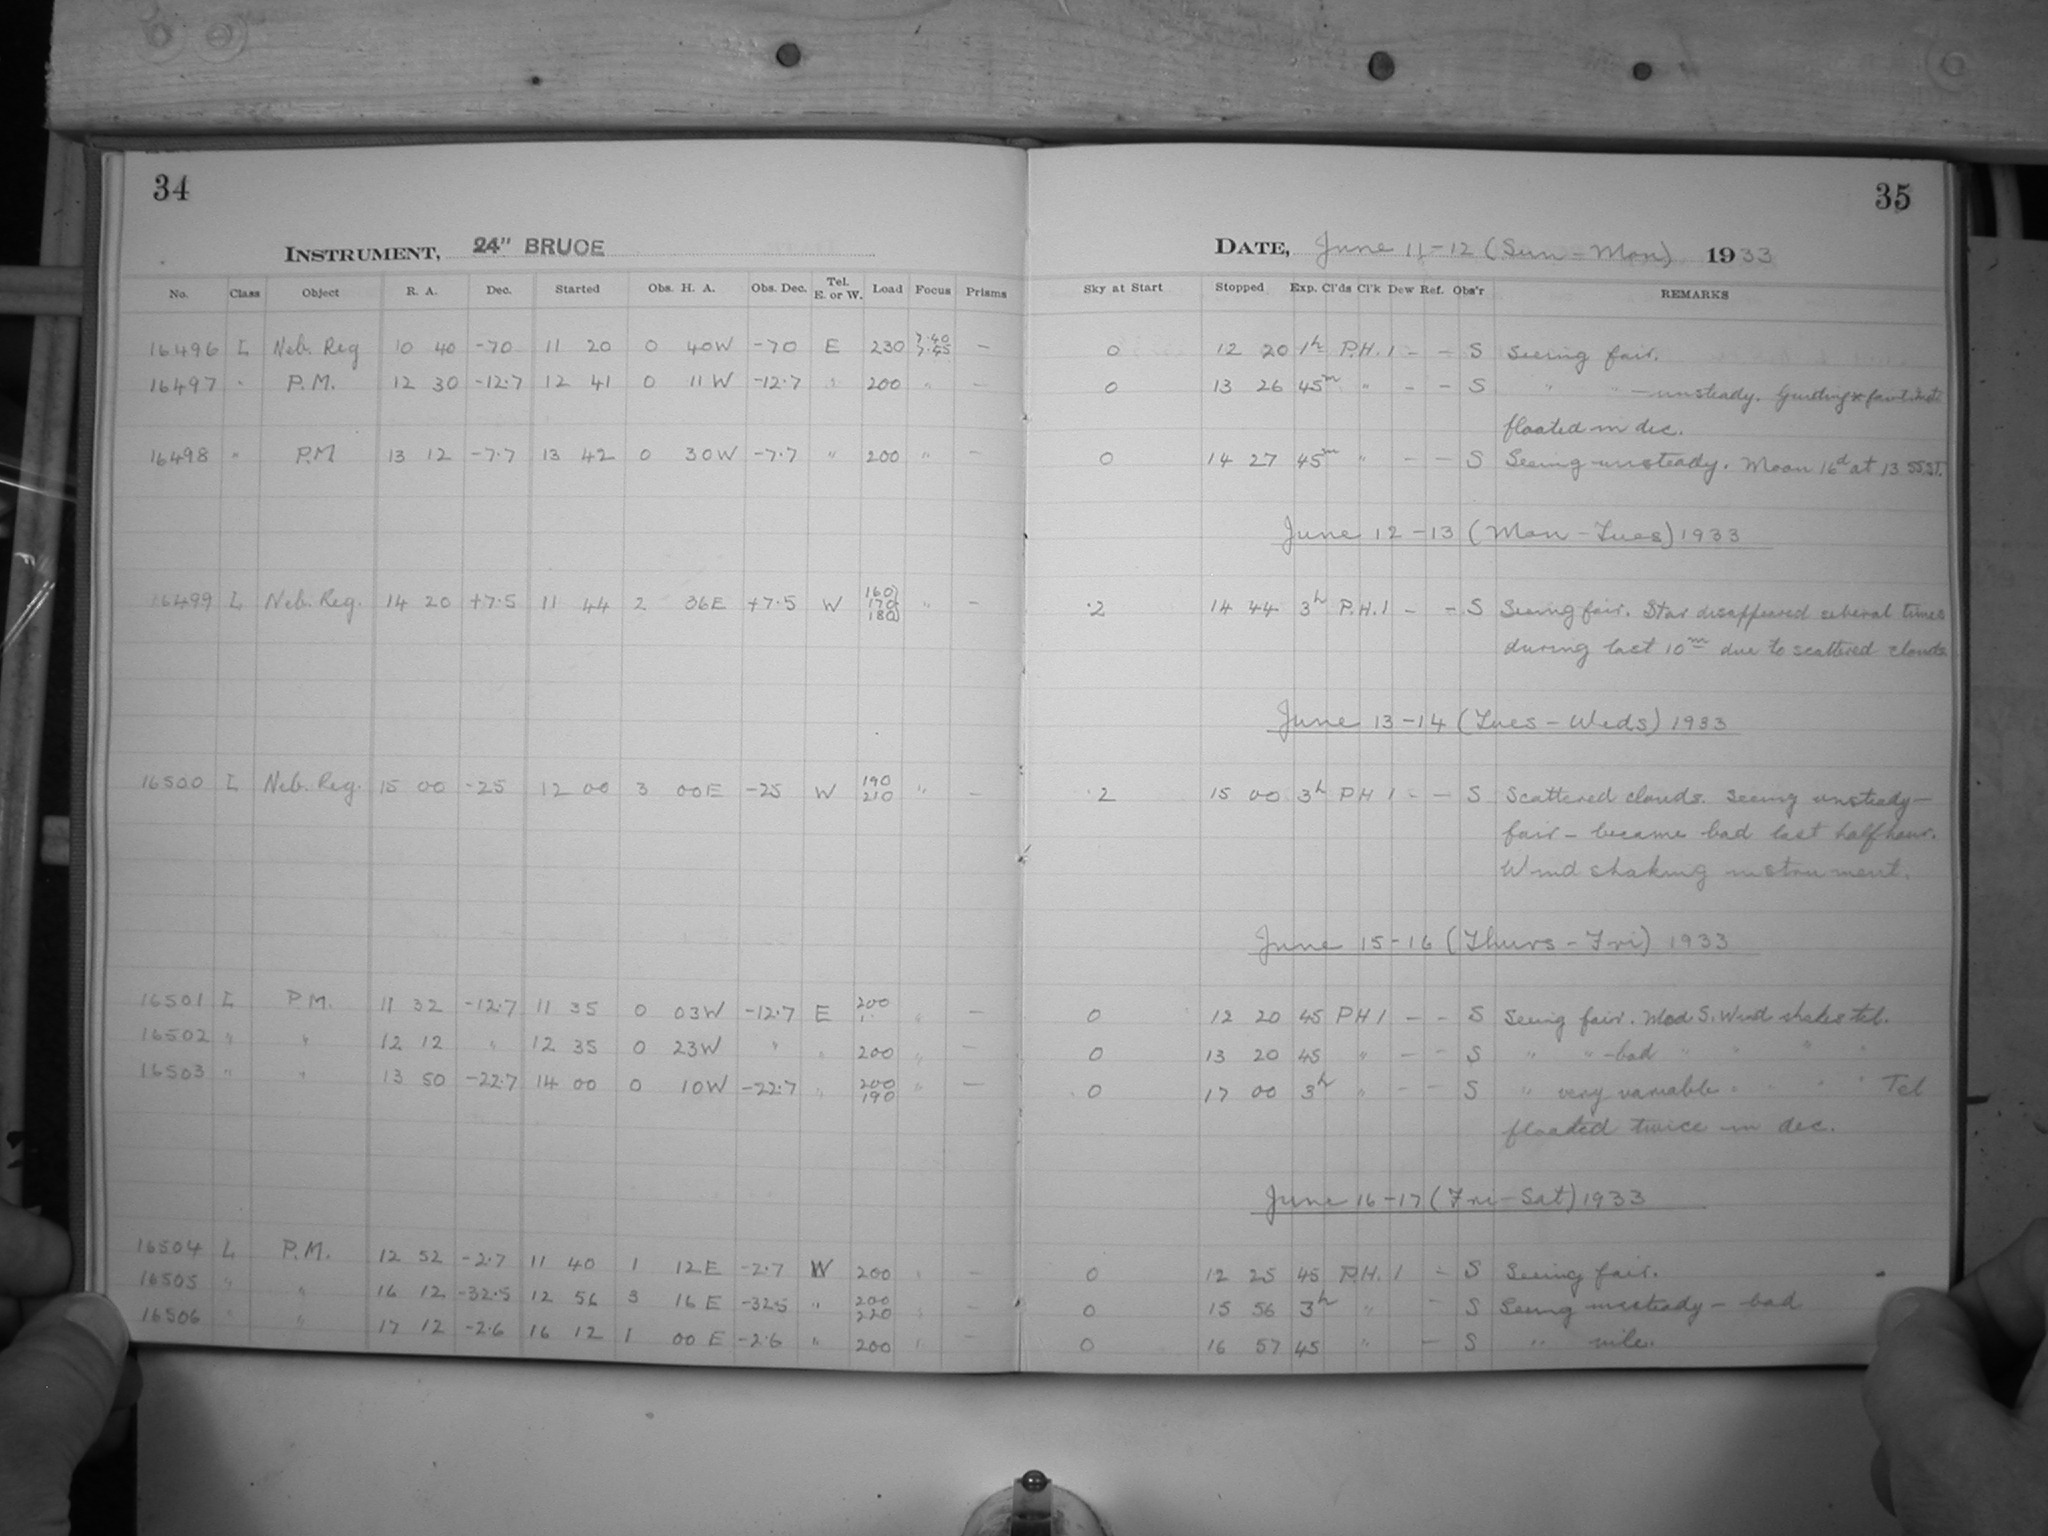 34
35
INSTRUMENT, 24" BRUCE
DATE, June 11-12 (Sun-Mon) 1933
No. Class Object R. A. Dec. Started Obs. H. A. Obs. Dec. Tel. E. or W. Load Focus Prisms Sky at Start Stopped Exp. Cl'ds Cl'k Dew Ref. Obs'r REMARKS
16496 L Neb. Reg 10 40 -70 11 20 0 40W -70 E 230 7.40 7.45 — 0 12 20 1h P.H. 1 - - S Seeing fair.
16497 " P.M. 12 30 -12.7 12 41 0 11W -12.7 " 200 " — 0 13 26 45m " - - S " " — unsteady. Guiding * faint. Inst
floated in dec.
16498 " P.M 13 12 -7.7 13 42 0 30W -7.7 " 200 " — 0 14 27 45m " - - S Seeing unsteady. Moon 16d at 13 55 ST.
June 12-13 (Mon-Tues) 1933
16499 L Neb. Reg. 14 20 +7.5 11 44 2 36E +7.5 W 160 170 180 " — .2 14 44 3h P.H. 1 - - S Seeing fair. Star disappeared several times
during last 10m due to scattered clouds
June 13-14 (Tues-Weds) 1933
16500 L Neb. Reg. 15 00 -25 12 00 3 00E -25 W 190 210 " — .2 15 00 3h P.H 1 - - S Scattered clouds. Seeing unsteady-
fair - became bad last half hour.
Wind shaking instrument.
June 15-16 (Thurs-Fri) 1933
16501 L P.M. 11 32 -12.7 11 35 0 03W -12.7 E 200 " — 0 12 20 45 P H 1 - - S Seeing fair. Mod S. Wind shakes tel.
16502 " " 12 12 " 12 35 0 23W " " 200 " — 0 13 20 45 " - - S " " -bad " " " "
16503 " " 13 50 -22.7 14 00 0 10W -22.7 " 200 190 " — 0 17 00 3h " - - S " very variable " " " " Tel
floated twice in dec.
June 16-17 (Fri-Sat) 1933
16504 L P.M. 12 52 -2.7 11 40 1 12E -2.7 W 200 " — 0 12 25 45 P.H. 1 - S Seeing fair.
16505 " " 16 12 -32.5 12 56 3 16E -32.5 " 200 220 " — 0 15 56 3h " - S Seeing unsteady - bad
16506 " " 17 12 -2.6 16 12 1 00E -2.6 " 200 " — 0 16 57 45 " - S " vile.